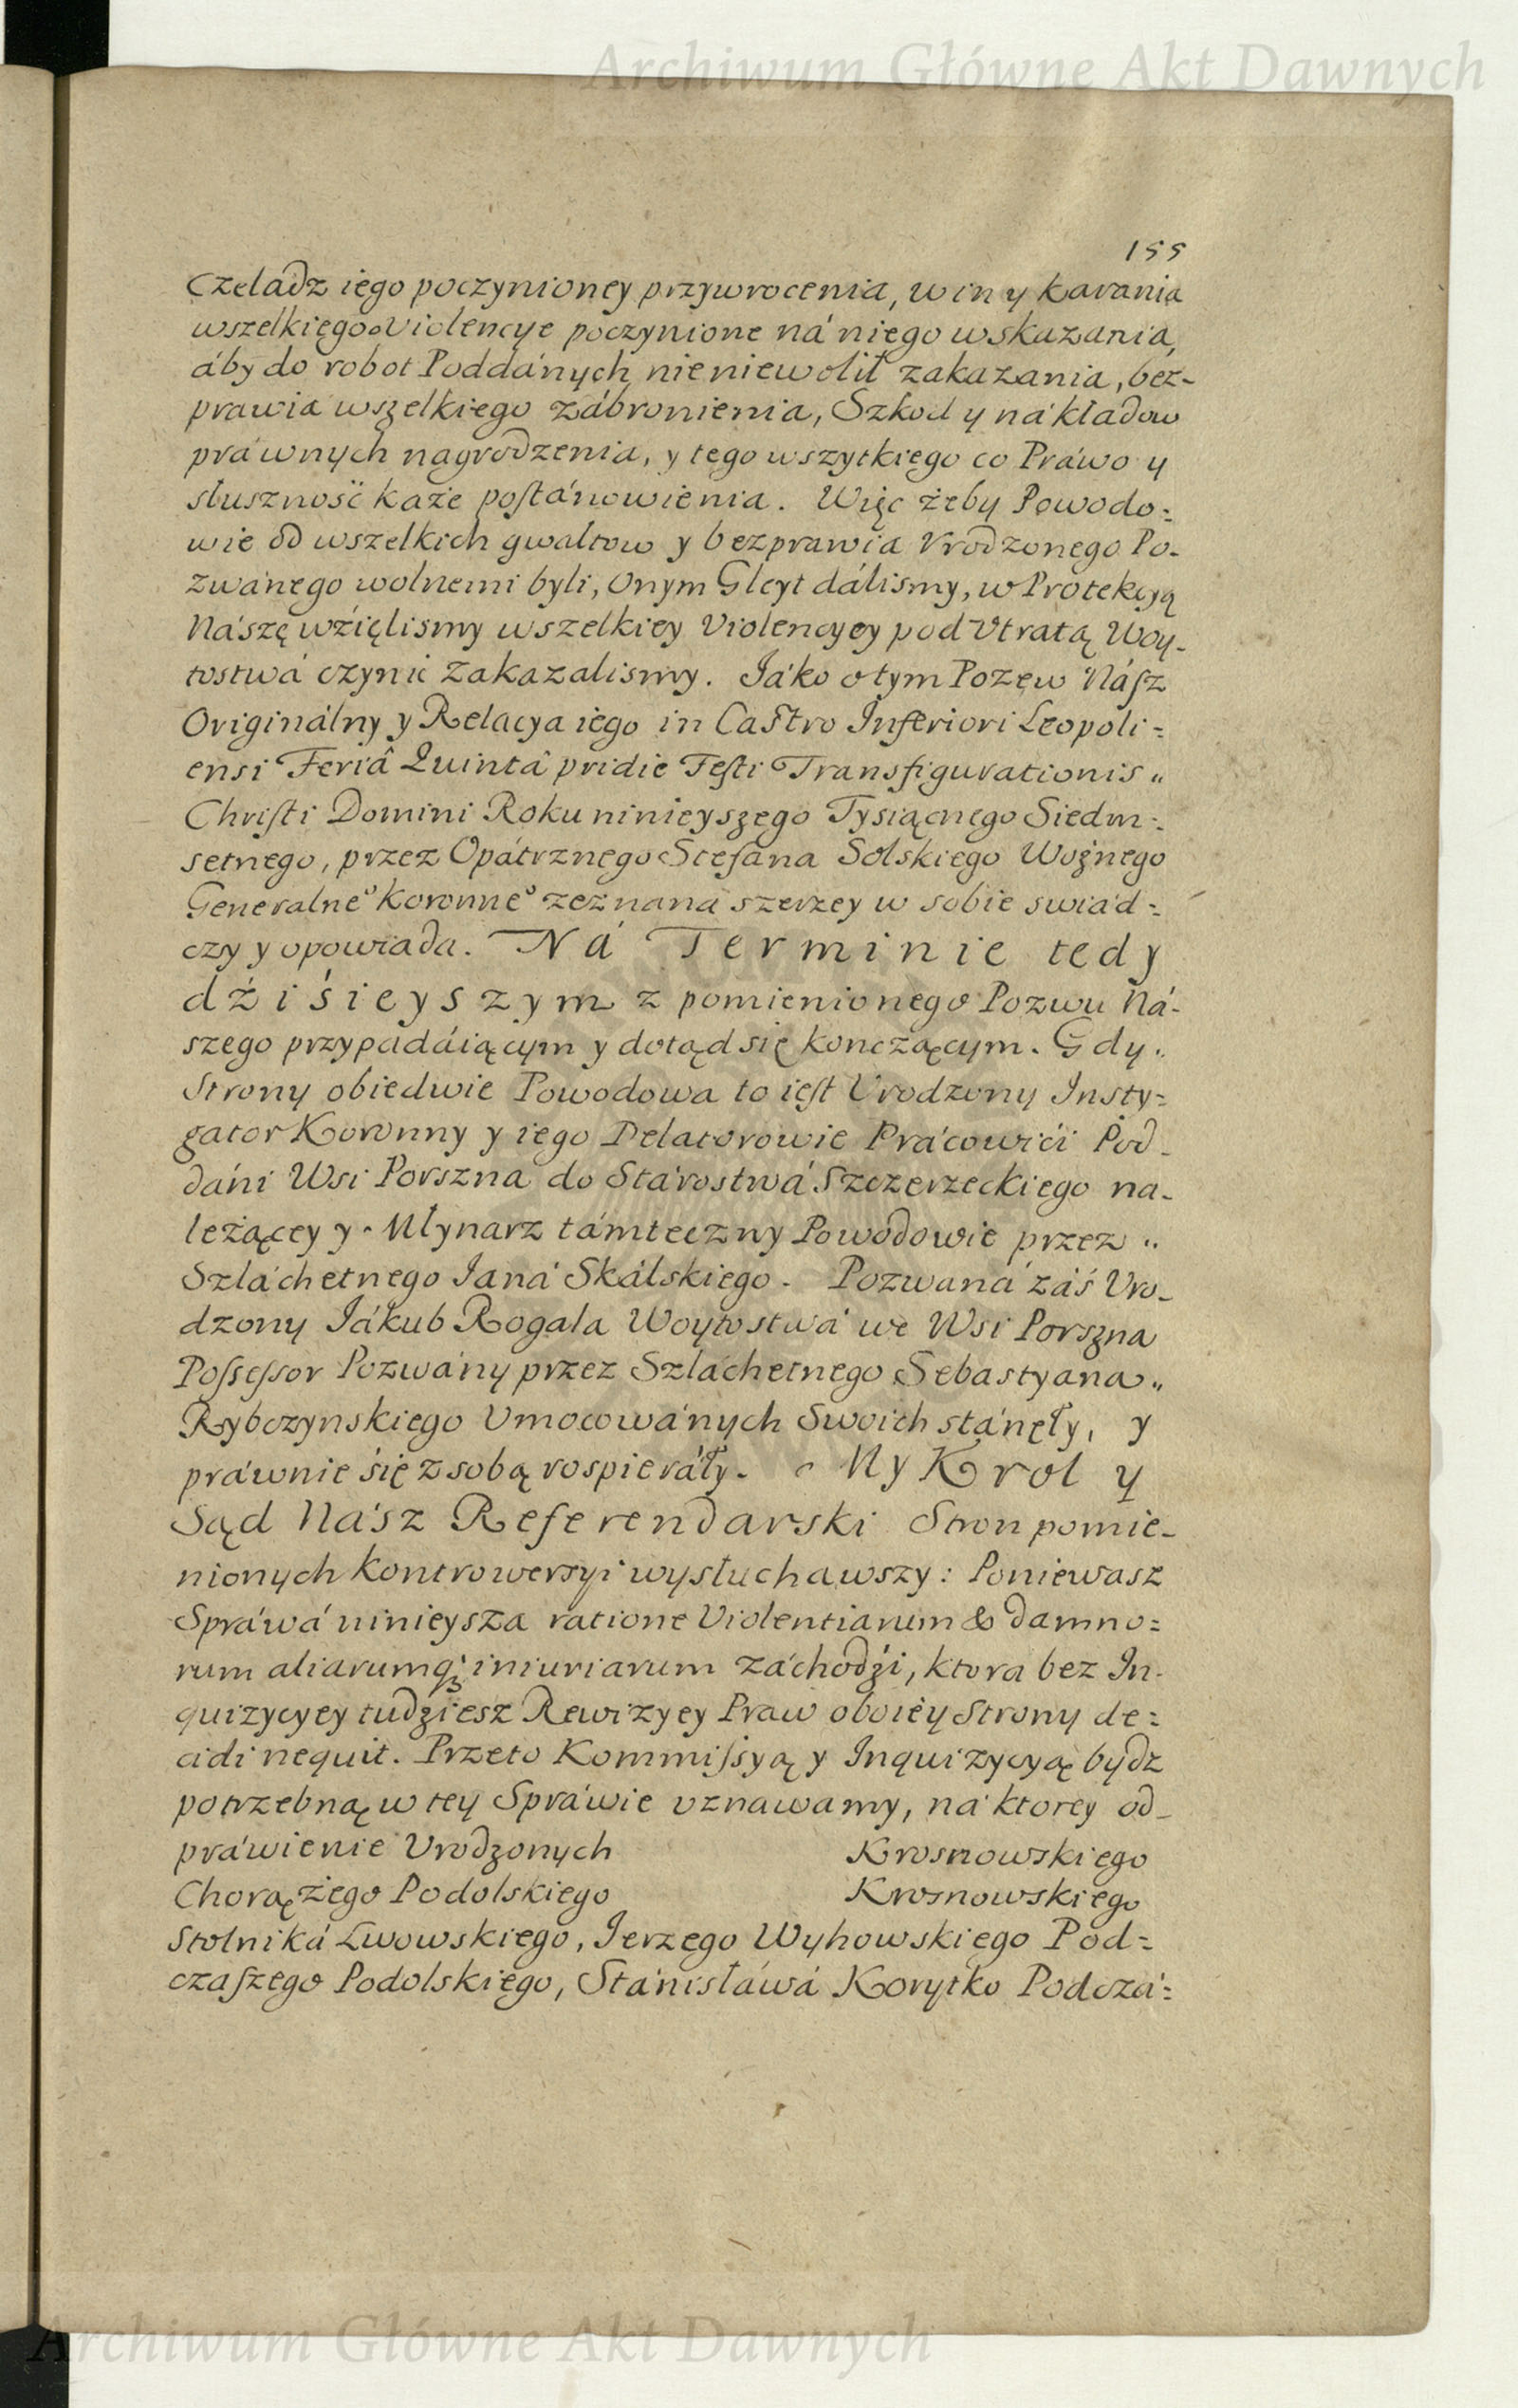 Archiwum Główne Akt Dawnych
155
Czeladz iego poczynioney przywrocenia, win y karania
wszelkiego o Violencye poczynione ná niego wskazania,
áby do robot Poddánych nieniewolił zakazania, bez-
prawia wszelkiego zábronienia, Szkod y nákładow
práwnych nagrodzenia, y tego wszytkiego co Práwo y
słuszność każe postánowienia. Więc żeby Powodo=
wie od wszelkich gwałtow y bezprawia Vrodzonego Po-
zwánego wolnemi byli, Onym Gleyt dálismy, w Protekcyą
Nászę wzięlismy wszelkiey Violencyey pod Vtratą Woy-
tostwá czynić zakazalismy. Jáko o tym Pozew Nász
Originálny y Relacya iego in Castro Inferiori Leopoli=
ensi Feriâ Quintâ pridie Festi Transfigurationis
Christi Domini Roku ninieyszego Tysiącnego Siedm=
setnego, przez Opátrznego Stefana Solskiego Woźnego
Generalneº Koronneº zeznana szerzey w sobie swiad=
czy y opowiada. Ná Terminie tedy
dźiśieyszym z pomienionego Pozwu Ná-
szego przypadáiącym y dotąd się konczącym. Gdy
Strony obiedwie Powodowa to iest Urodzony Insty=
gator Koronny y iego Delatorowie Prácowići Pod-
dáni Wsi Porszna do Stárostwá Szczerzeckiego na-
leżącey y Młynarz támteczny Powodowie przez
Szláchetnego Janá Skálskiego. Pozwaná záś Vro-
dzony Jákub Rogala Woytostwá we Wsi Porszna
Possessor Pozwány przez Szláchetnego Sebastyana
Rybczynskiego Umocowánych Swoich stánęły, y
práwnie się z sobą rospieráły. My Krol y
Sąd Nász Referendarski Stron pomie-
nionych kontrowersyi wysłuchawszy: Poniewasz
Spráwá ninieysza ratione Violentiarum & damno=
rum aliarumq; iniuriarum záchodźi, ktora bez In-
quizycyey tudźiesz Rewizyey Praw oboiey Strony de=
cidi nequit. Przeto Kommissyą y Inquizycyą bydz
potrzebną w tey Spráwie uznawamy, ná ktorey od-
práwienie Urodzonych Krosnowskiego
Chorążego Podolskiego Krosnowskiego
Stolniká Lwowskiego, Jerzego Wyhowskiego Pod=
czaszego Podolskiego, Stánisłáwá Korytko Podczá=
Archiwum Główne Akt Dawnych